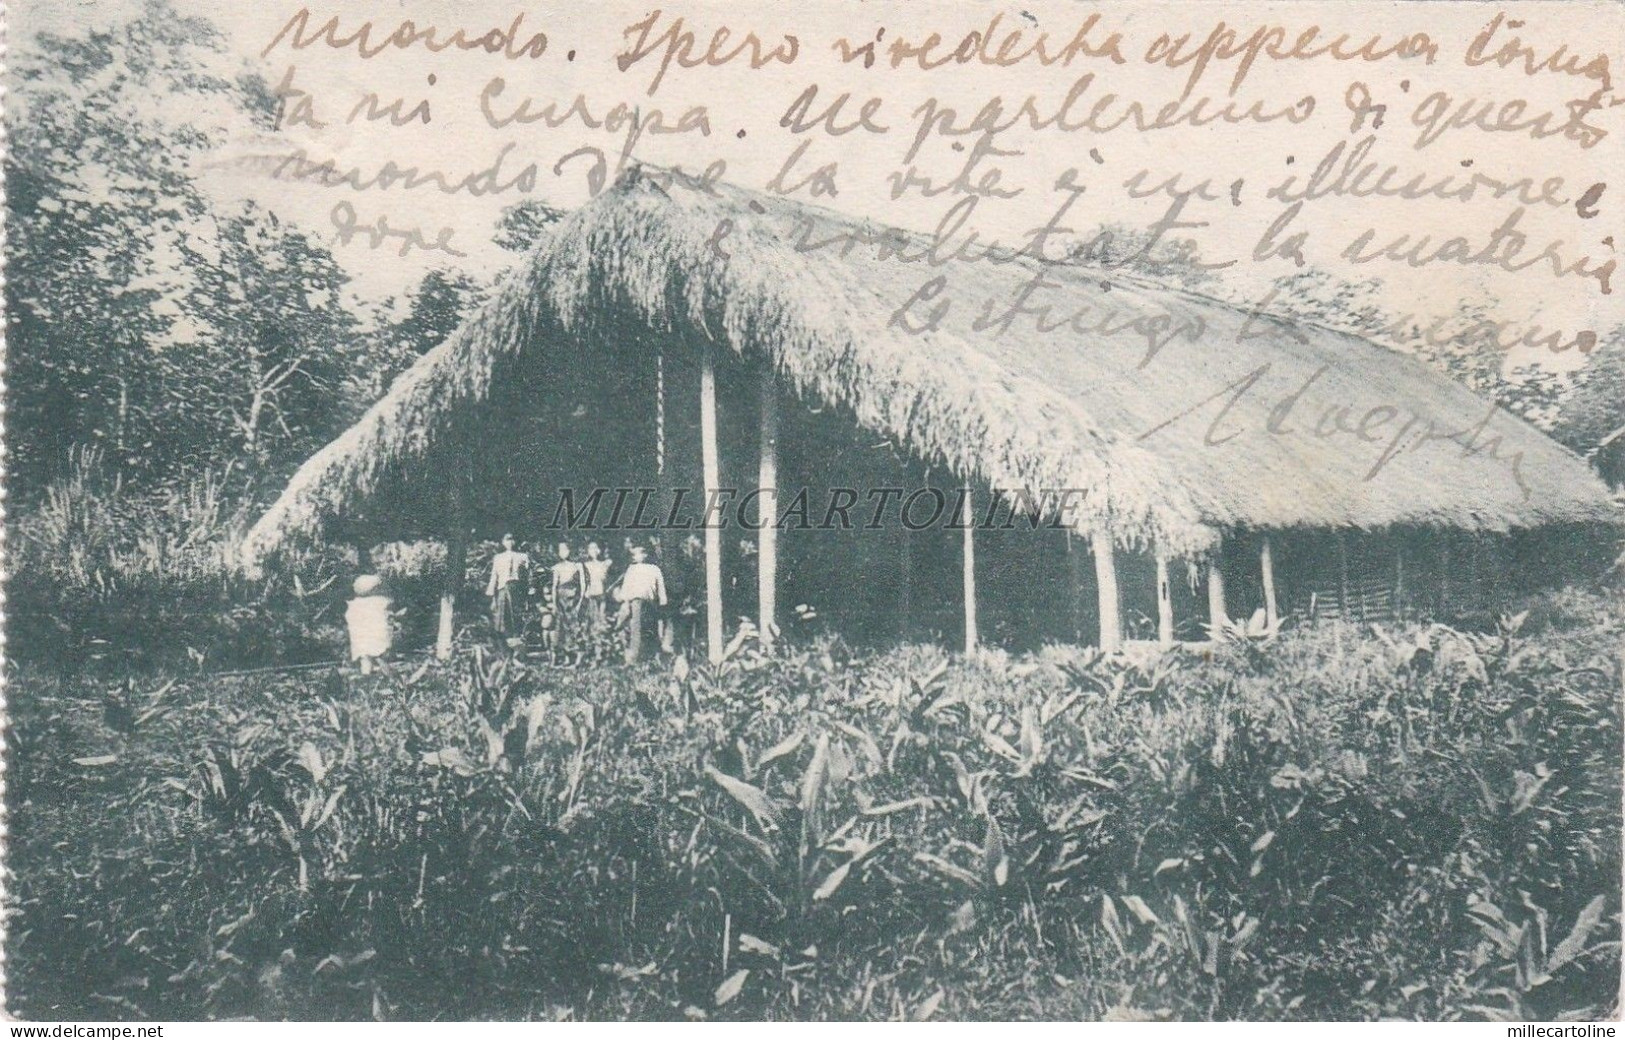 mondo. Spero rivederla appena torna
ta in Europa. Ne parleremo di questo
mondo dove la vita è un illusione e
dove è svalutata la materia
Le stringo la mano
MILLECARTOLINE
millecartoline